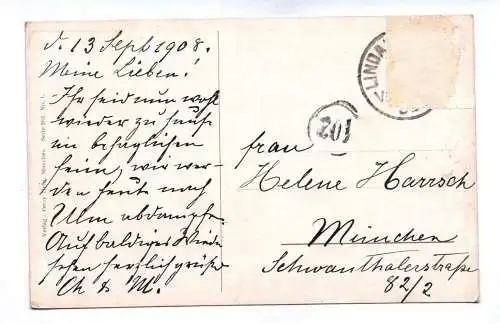 d. 13 Sept 1908.
Meine Lieben!
Ihr seid nun wohl
wieder zu hause
im behaglichen
heim, wir wer-
den heut nach
Ulm abdampfen
Auf baldiges Wieder
sehen herzlich grüßt
Ch & M.
LINDA
102
frau
Helene Harrsch
München
Schwanthalerstraße
82/2